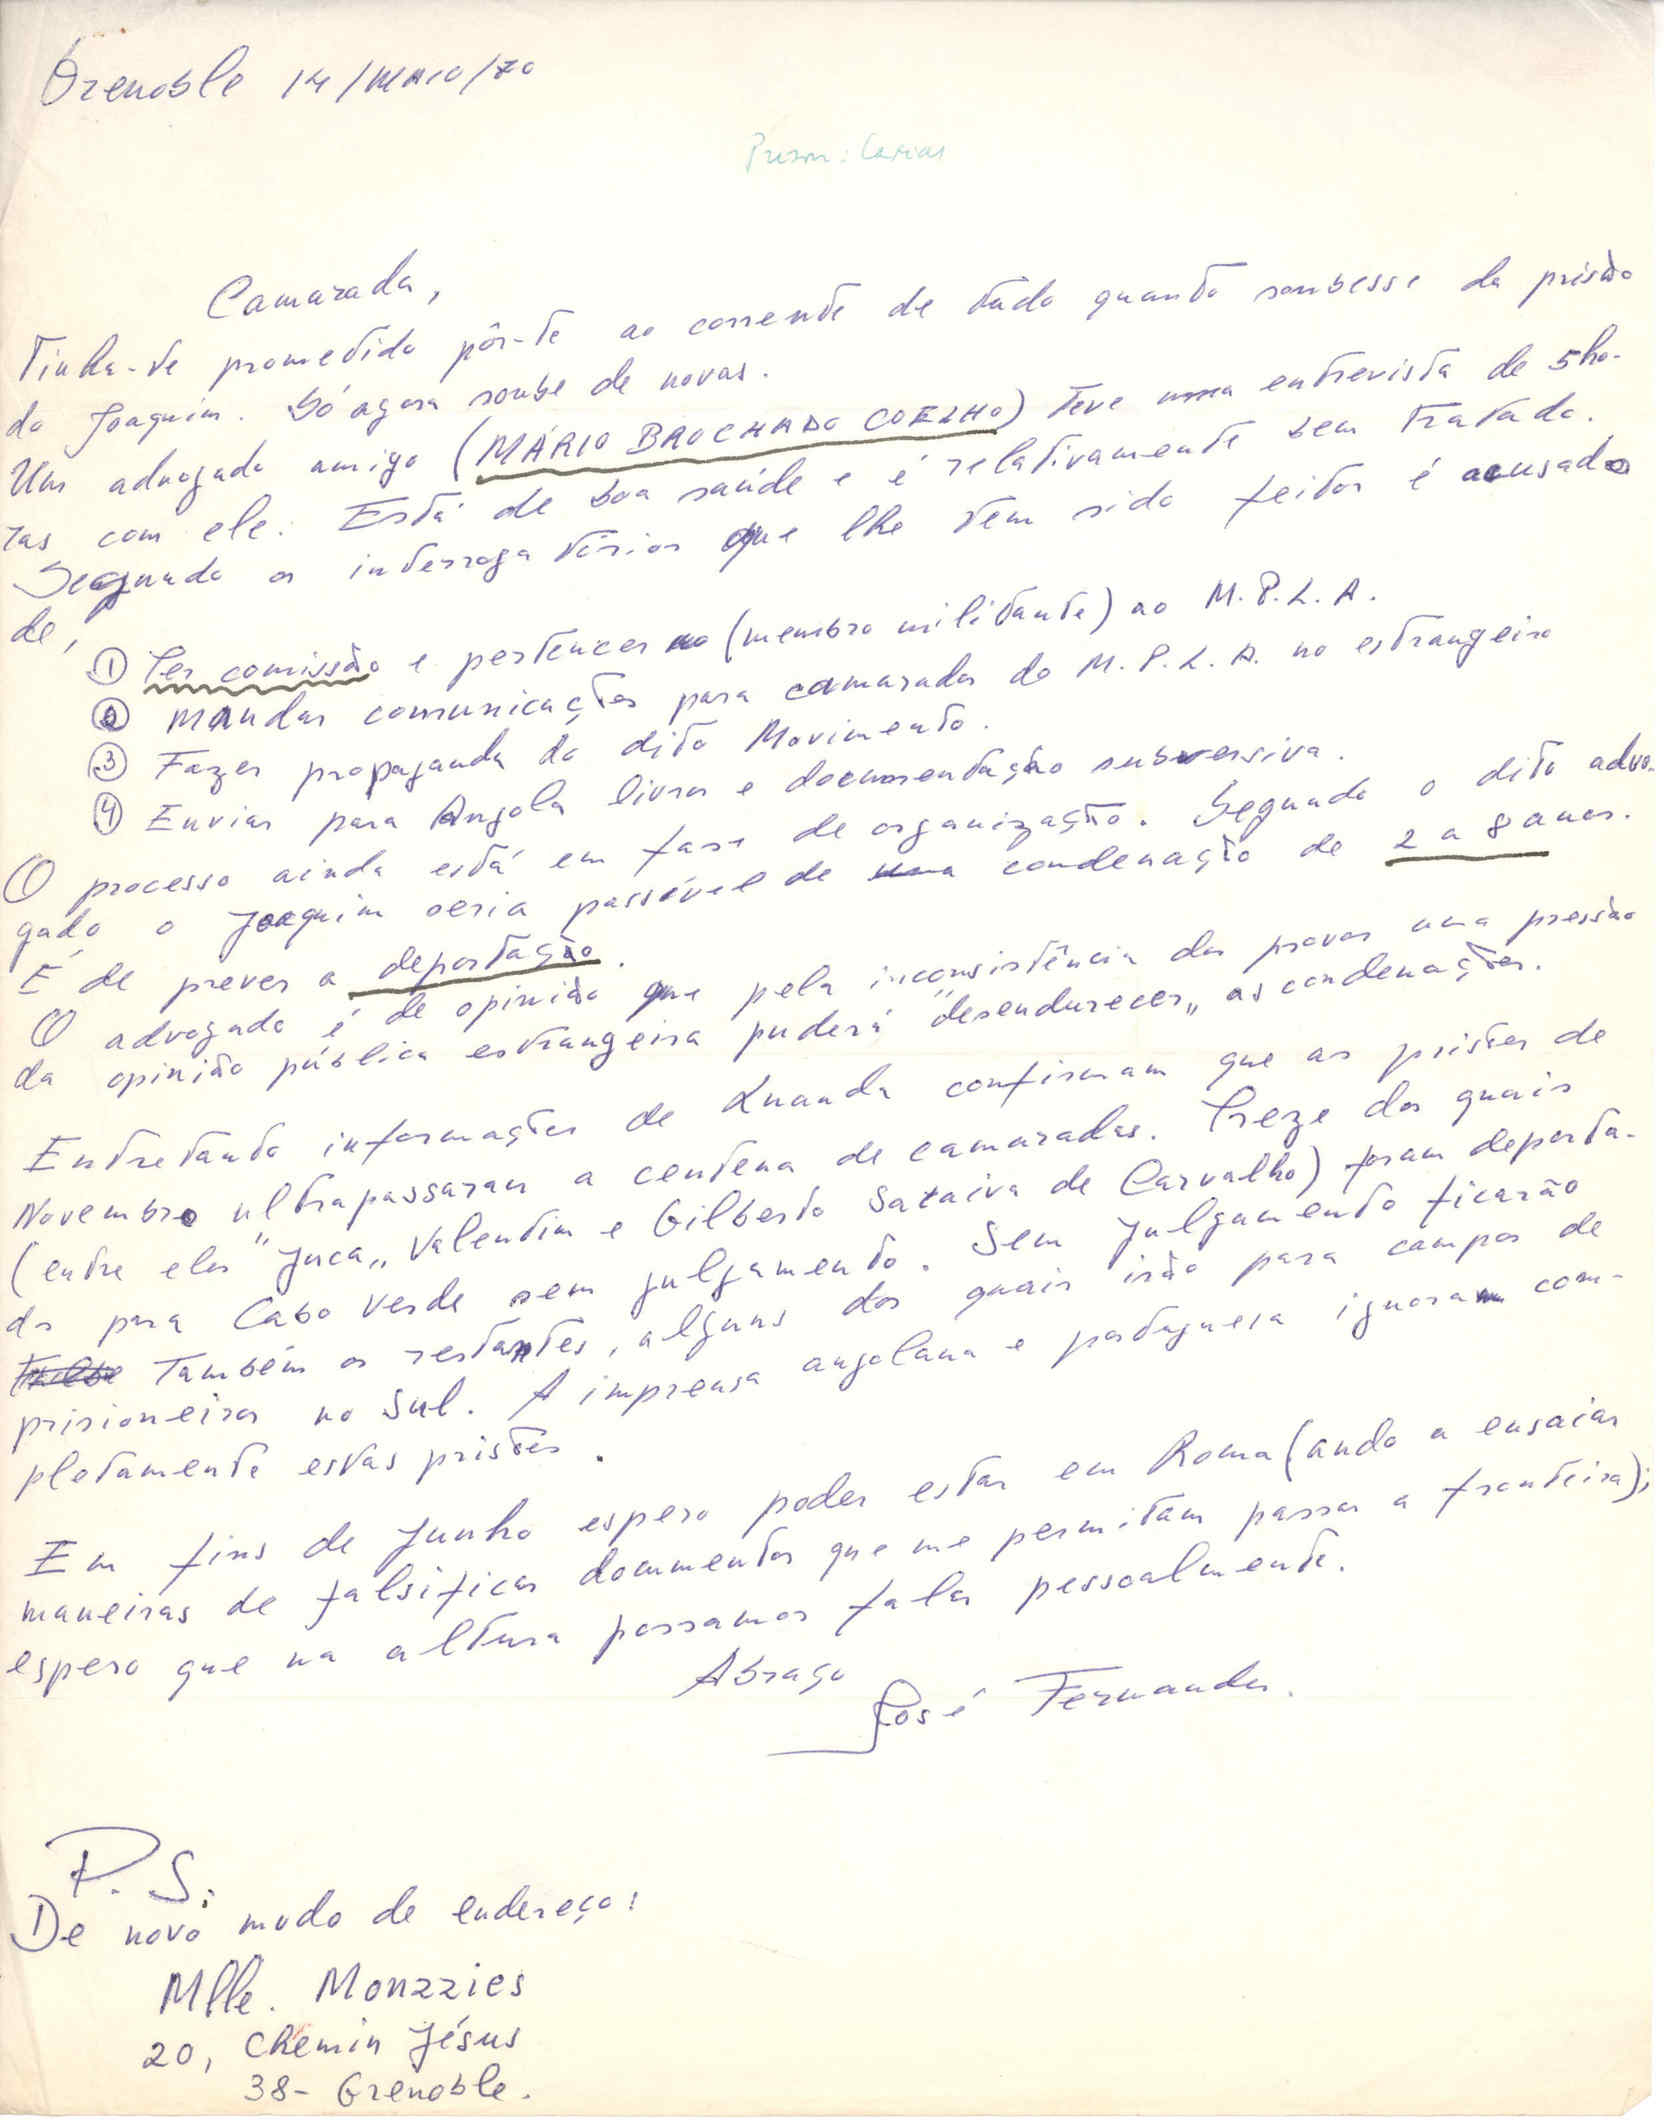 Grenoble 14/MAIO/70
Camarada,
Tinha-te prometido pôr-te ao corrente de tudo quanto soubesse da prisão
do Joaquim. Só agora soube de novas.
Um advogado amigo (MÁRIO BROCHADO COELHO) teve uma entrevista de 5 ho-
ras com ele. Está de boa saúde e é relativamente bem tratado.
Segundo os interrogatórios que lhe tem sido feitos é acusado
de,
① Ter comissão e pertencer (membro militante) ao M.P.L.A.
② Mandar comunicações para camaradas do M.P.L.A. no estrangeiro
③ Fazer propaganda do dito Movimento.
④ Enviar para Angola livros e documentação subversiva.
O processo ainda está em fase de organização. Segundo o dito advo-
gado o Joaquim seria passível de uma condenação de 2 a 8 anos.
É de prever a deportação.
O advogado é de opinião que pela inconsistência das provas uma pressão
da opinião pública estrangeira puderá "desendurecer" as condenações.
Entretanto informações de Luanda confirmam que as prisões de
Novembro ultrapassaram a centena de camaradas. Treze dos quais
(entre eles "Juca" Valentim e Gilberto Saraiva de Carvalho) foram deporta-
dos para Cabo Verde sem julgamento. Sem julgamento ficarão
também os restantes, alguns dos quais irão para campos de
prisioneiros no Sul. A imprensa angolana e portuguesa ignoram com-
pletamente estas prisões.
Em fins de Junho espero poder estar em Roma (ando a ensaiar
maneiras de falsificar documentos que me permitam passar a fronteira);
espero que na altura possamos falar pessoalmente.
Abraço
José Fernandes.
P.S.
De novo mudo de endereço:
Mlle. Monzzies
20, Chemin Jésus
38- Grenoble.